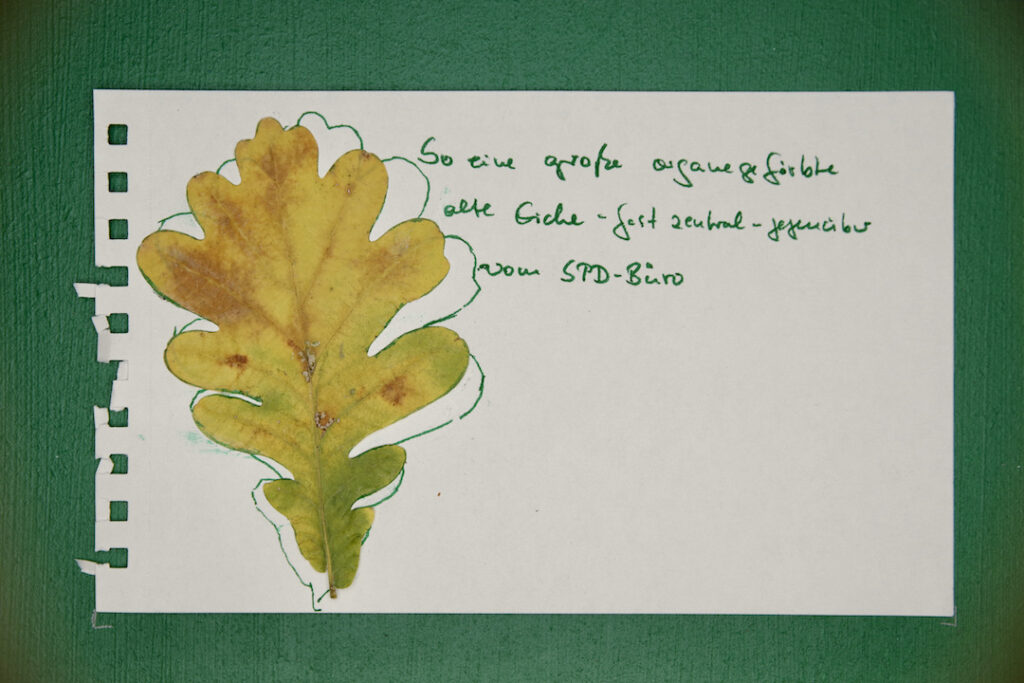 So eine große organegefärbte
alte Eiche - fast zentral - gegenüber
vom SPD-Büro